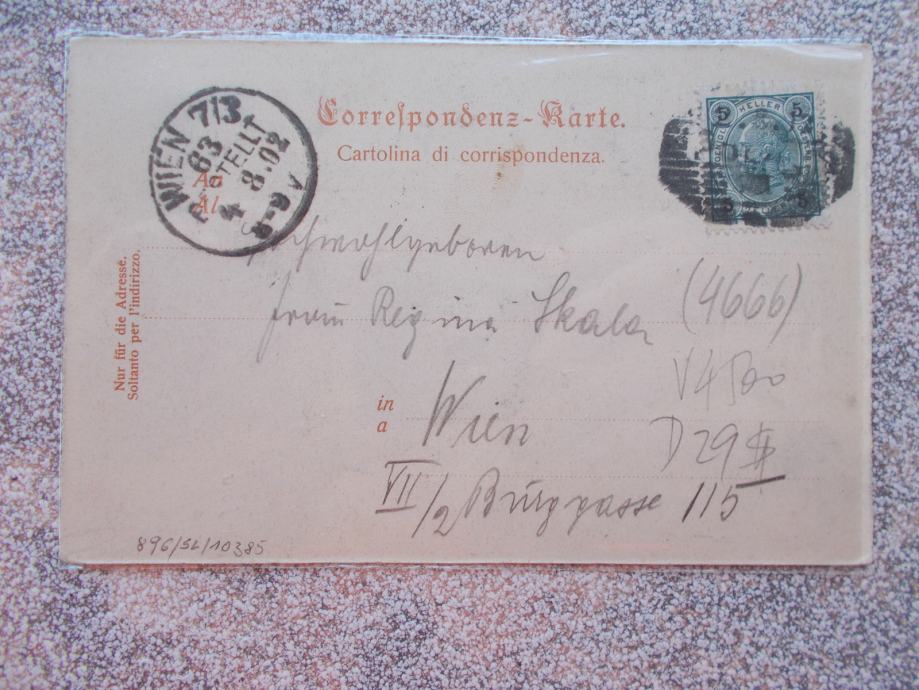 Correspondenz-Karte.
Cartolina di corrispondenza.
WIEN 7/3
63
BESTELLT
4 8.02
8-9 V
An
Al
5 HELLER 5
Hochwohlgeboren
Frau Regina Skala
(4666)
V4500
in
a
Wien
D29
VII/2 Burggasse 115
Nur für die Adresse.
Soltanto per l'indirizzo.
896/SL/10385